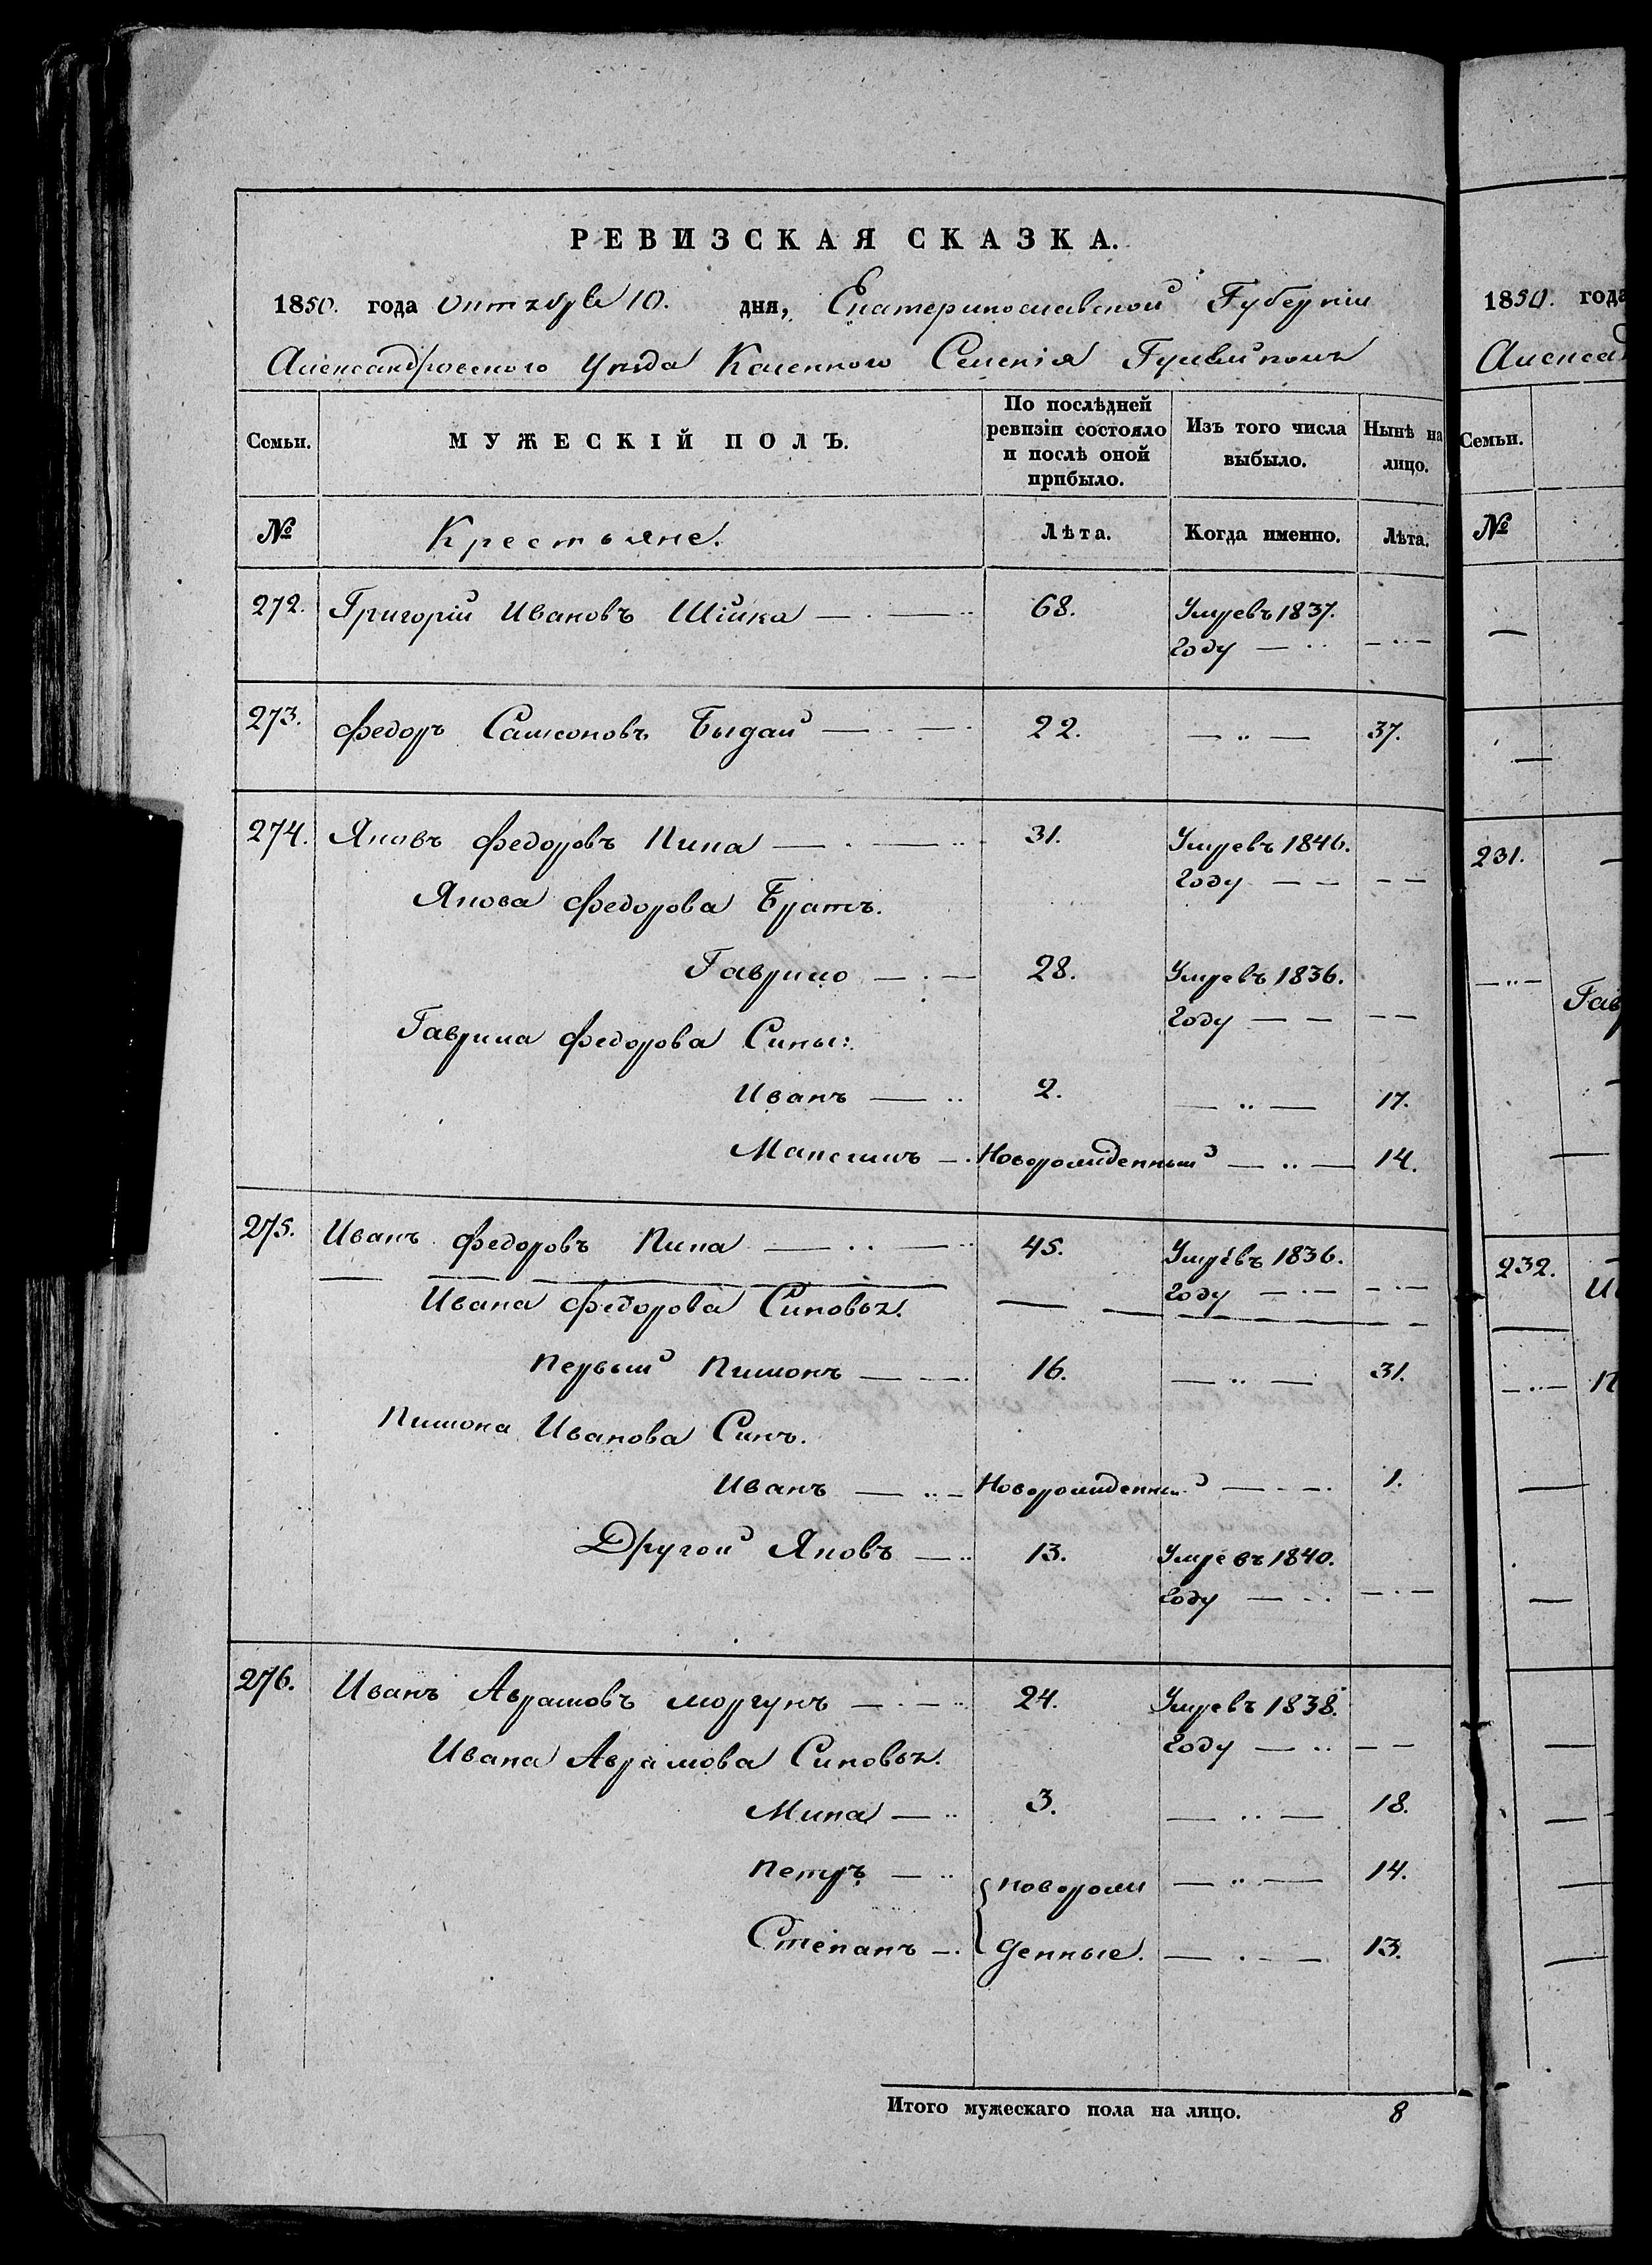 РЕВИЗСКАЯ СКАЗКА.
1850. года Октября 10. дня, Екатеринославской Губерніи
Александровского Уезда Казенного Селенія
Семьи. МУЖЕСКІЙ ПОЛЪ. По послѣдней ревизіи состояло и послѣ оной прибыло. Изъ того числа выбыло. Нынѣ на лицо.
№ Крестьяне. Лѣта. Когда именно. Лѣта.
272. Григорій Ивановъ Шійка 68. Умревъ 1837.
году
273. Федоръ Самсоновъ Быдай 22. 37.
274. Яковъ Федоровъ Кика 31. Умревъ 1846.
году
Якова Федорова Братъ.
Гаврило 28. Умревъ 1836.
году
Гаврила Федорова Сины:
Иванъ 2. 17.
Максимъ Новорожденный 14.
275. Иванъ Федоровъ Кика 45. Умревъ 1836.
году
Ивана Федорова Синовья.
Первый Пимонъ 16. 31.
Пимона Иванова Синъ.
Иванъ Новорожденный 1.
Другой Яковъ 13. Умревъ 1840.
году
276. Иванъ Аврамовъ Моргунъ 24. Умревъ 1838.
году
Ивана Аврамова Синовья.
Мина 3. 18.
Петръ новорож 14.
Степанъ денные. 13.
Итого мужескаго пола на лицо. 8
1850. года
Семьи.
№
231.
232.